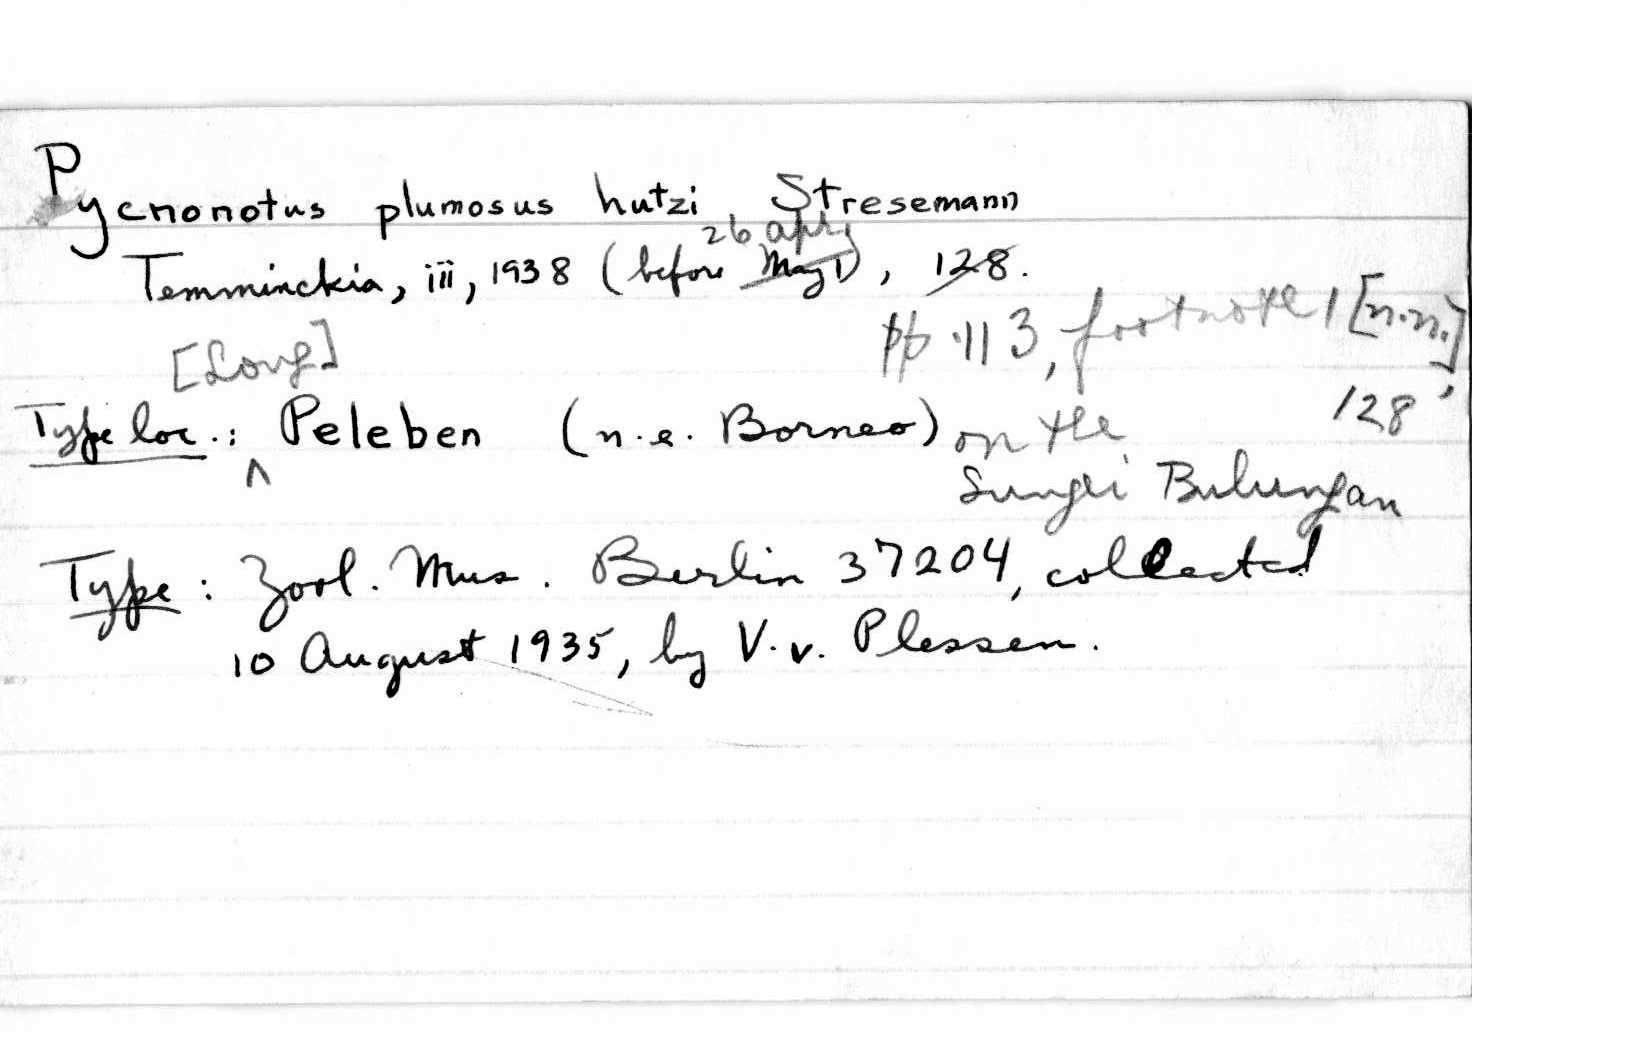 Pycnonotus plumosus hutzi, Stresemann
26 apr.
Temminckia, iii, 1938 (before May 1), 128.
pp. 113, footnote 1 [n.n.],
[Long]
128
Type loc.: ^ Peleben (n.e. Borneo) on the
Sungei Bulungan
Type: Zool. Mus. Berlin 37204, collected
10 August 1935, by V. v. Plessen.